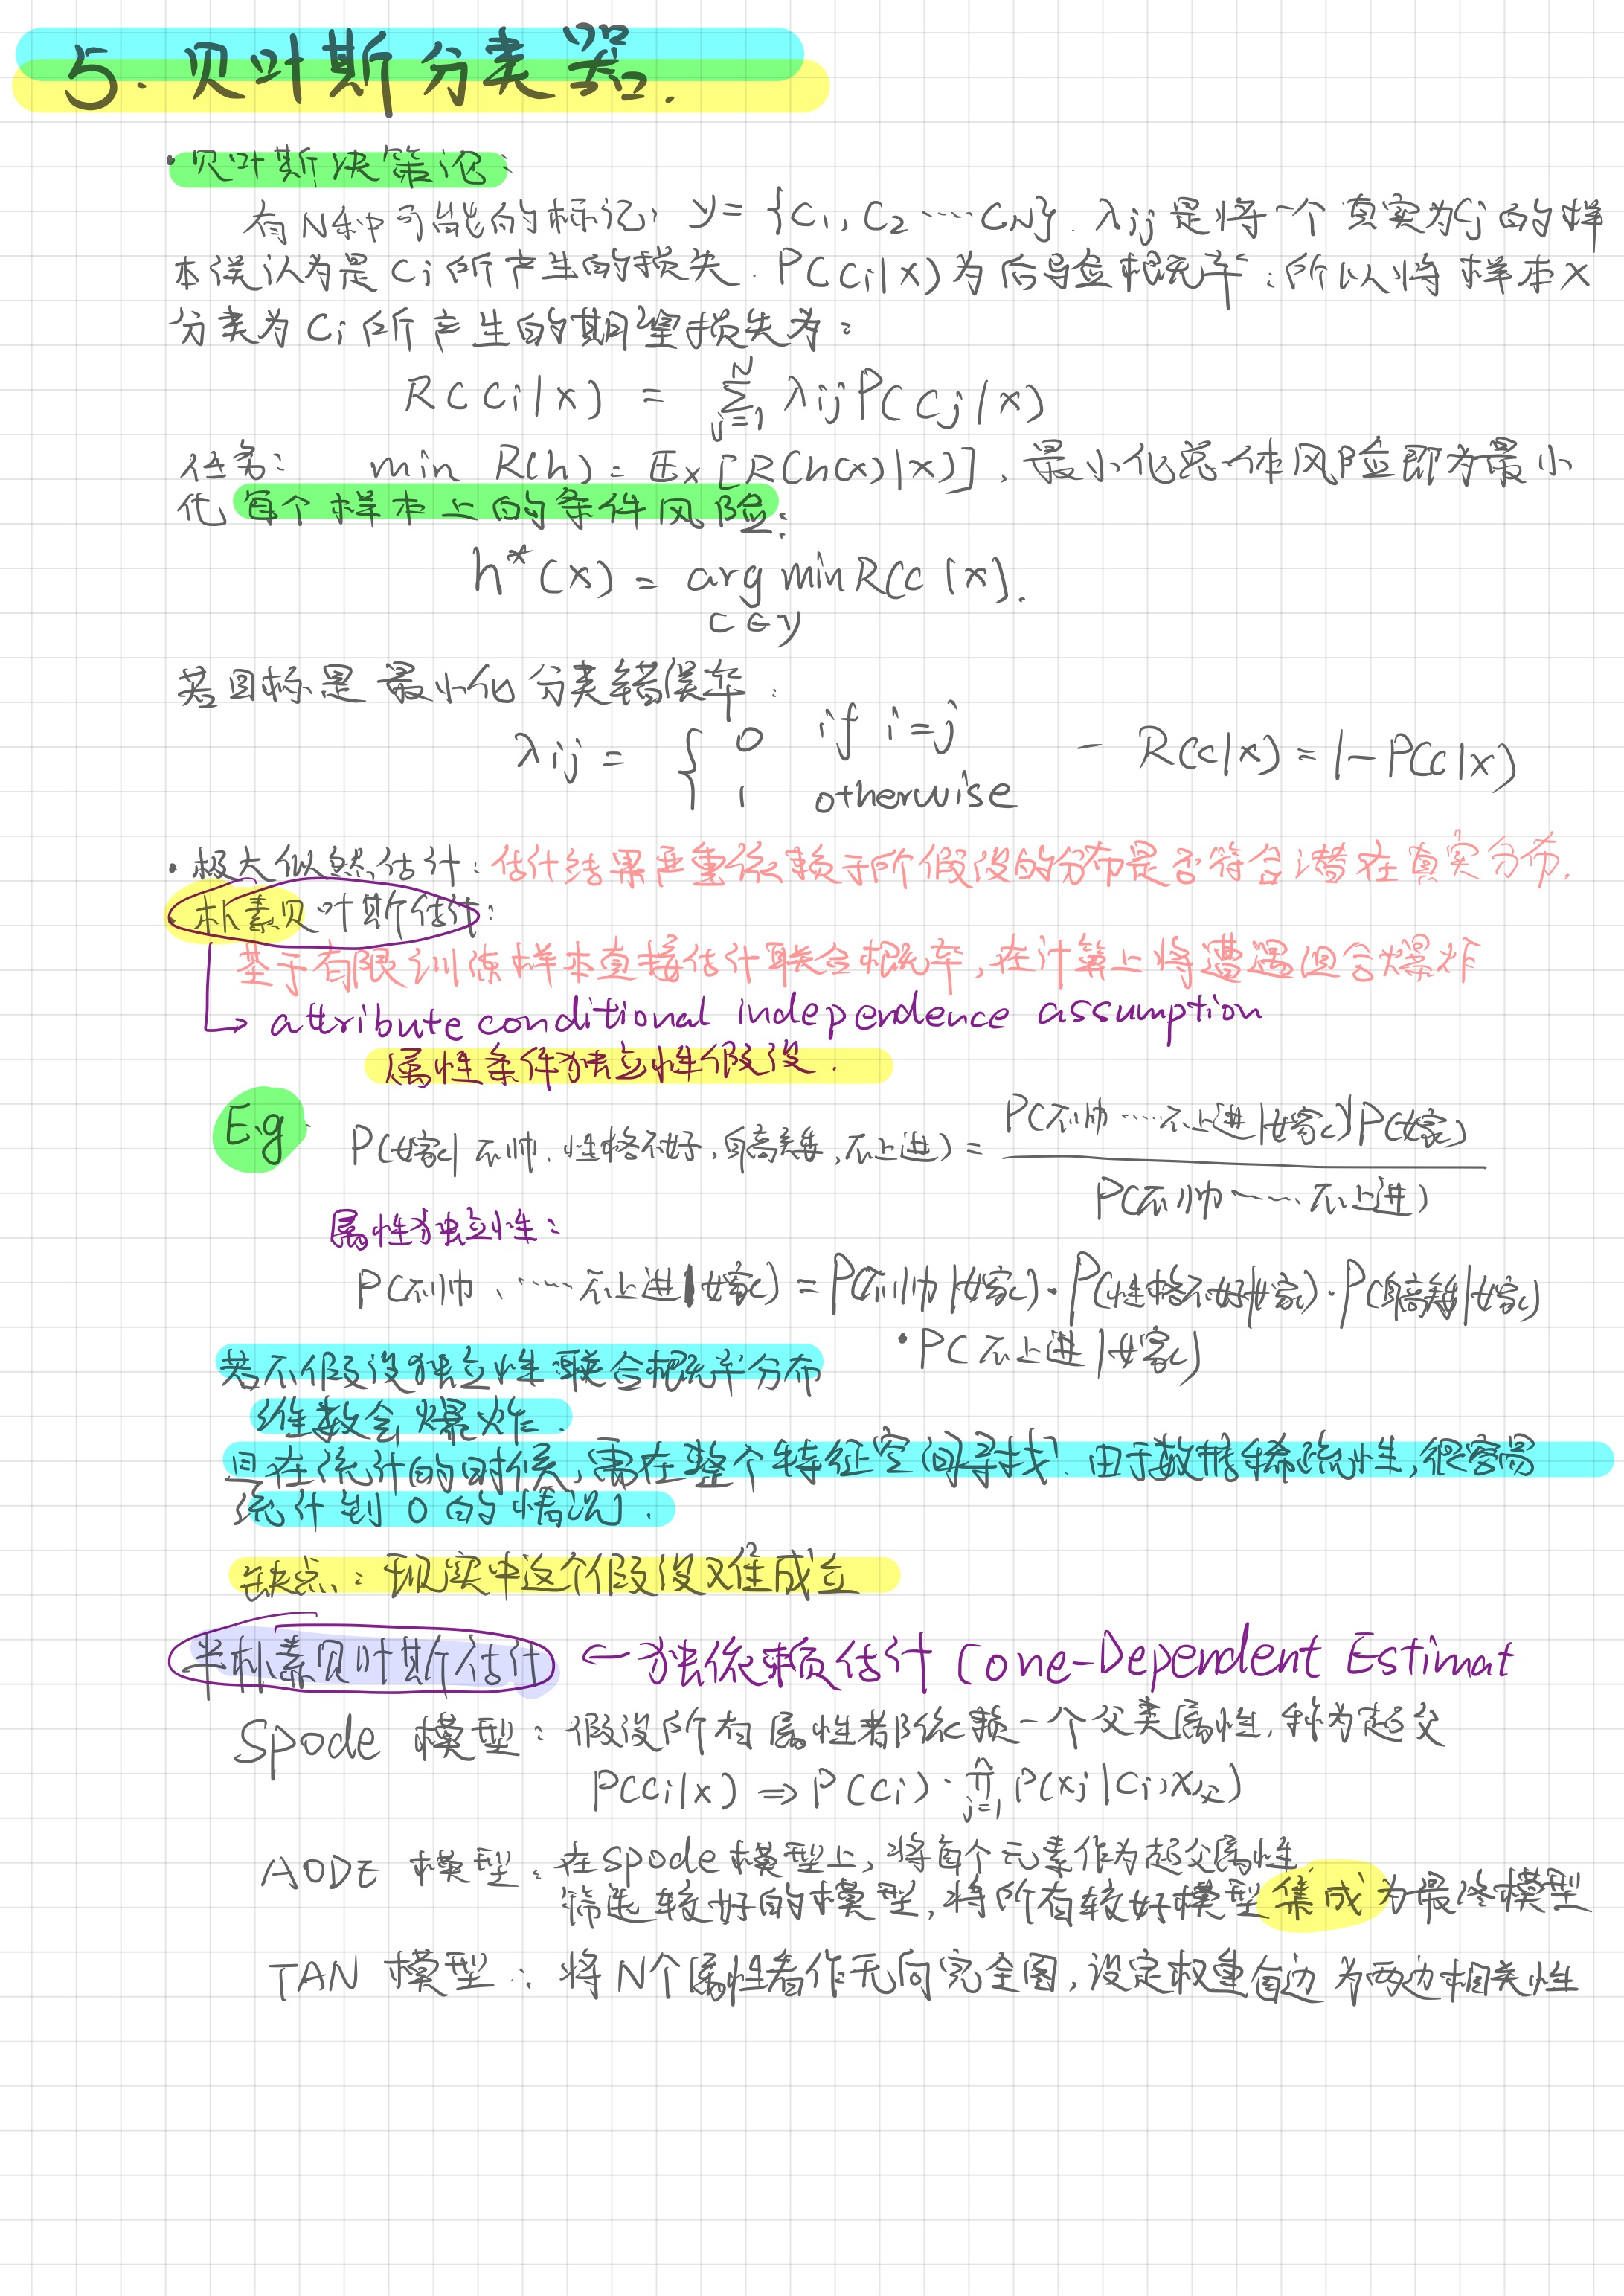 5. 贝叶斯分类器.
· 贝叶斯决策论:
有N种可能的标记, y = {C1, C2 ······ CN}. λij 是将一个真实为Cj的样
本误认为是Ci所产生的损失. P(Ci|x)为后导验概率; 所以将样本x
分类为Ci所产生的期望损失为:
R(Ci|x) = ∑_{j=1}^{N} λij P(Cj|x)
任务: min R(h) = Ex[R(h(x)|x)], 最小化总体风险即为最小
化每个样本上的条件风险:
h*(x) = arg min R(c|x).
c∈y
若目标是最小化分类错误率:
λij = { 0 if i=j
1 otherwise
— R(c|x) = 1 - P(c|x)
· 极大似然估计: 估计结果严重依赖于所假设的分布是否符合潜在真实分布.
朴素贝叶斯估计:
基于有限训练样本直接估计联合概率, 在计算上将遭遇组合爆炸
↳ attribute conditional independence assumption
属性条件独立性假设.
E.g P(嫁|不帅、性格不好, 身高矮, 不上进) = P(不帅 ······ 不上进|嫁) P(嫁)
P(不帅 ······ 不上进)
属性独立性:
P(不帅、······ 不上进|嫁) = P(不帅|嫁) · P(性格不好|嫁) · P(身高矮|嫁)
· P(不上进|嫁)
若不假设独立性 联合概率分布
维数会爆炸.
且在统计的时候, 需在整个特征空间寻找. 由于数据稀疏性, 很容易
统计到 0 的情况.
缺点: 现实中这个假设难成立
半朴素贝叶斯估计 ← 独依赖估计 (one-Dependent Estimat
Spode 模型: 假设所有属性都依赖一个父类属性, 称为超父
P(Ci|x) ⇒ P(Ci) · ∏_{j=1}^{n} P(xj|Ci, x父)
AODE 模型: 在spode模型上, 将每个元素作为超父属性.
筛选较好的模型, 将所有较好模型集成为最终模型
TAN 模型: 将N个属性看作无向完全图, 设定权重每边为两边相关性